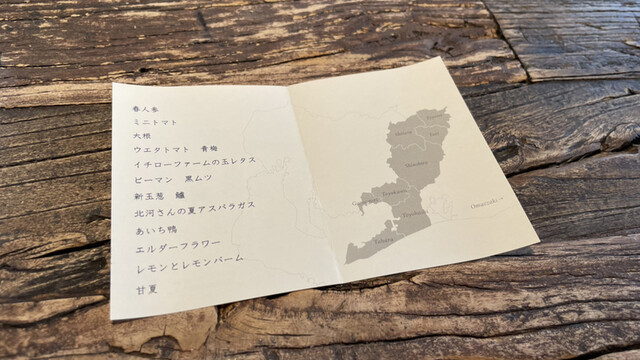 春人参
ミニトマト
大根
ウエタトマト 青梅
イチローファームの玉レタス
ピーマン 黒ムツ
新玉葱 鱸
北河さんの夏アスパラガス
あいち鴨
エルダーフラワー
レモンとレモンバーム
甘夏
Shinshiro
Toyokawa
Gamagori
Toyohashi
Tahara
Omaezaki